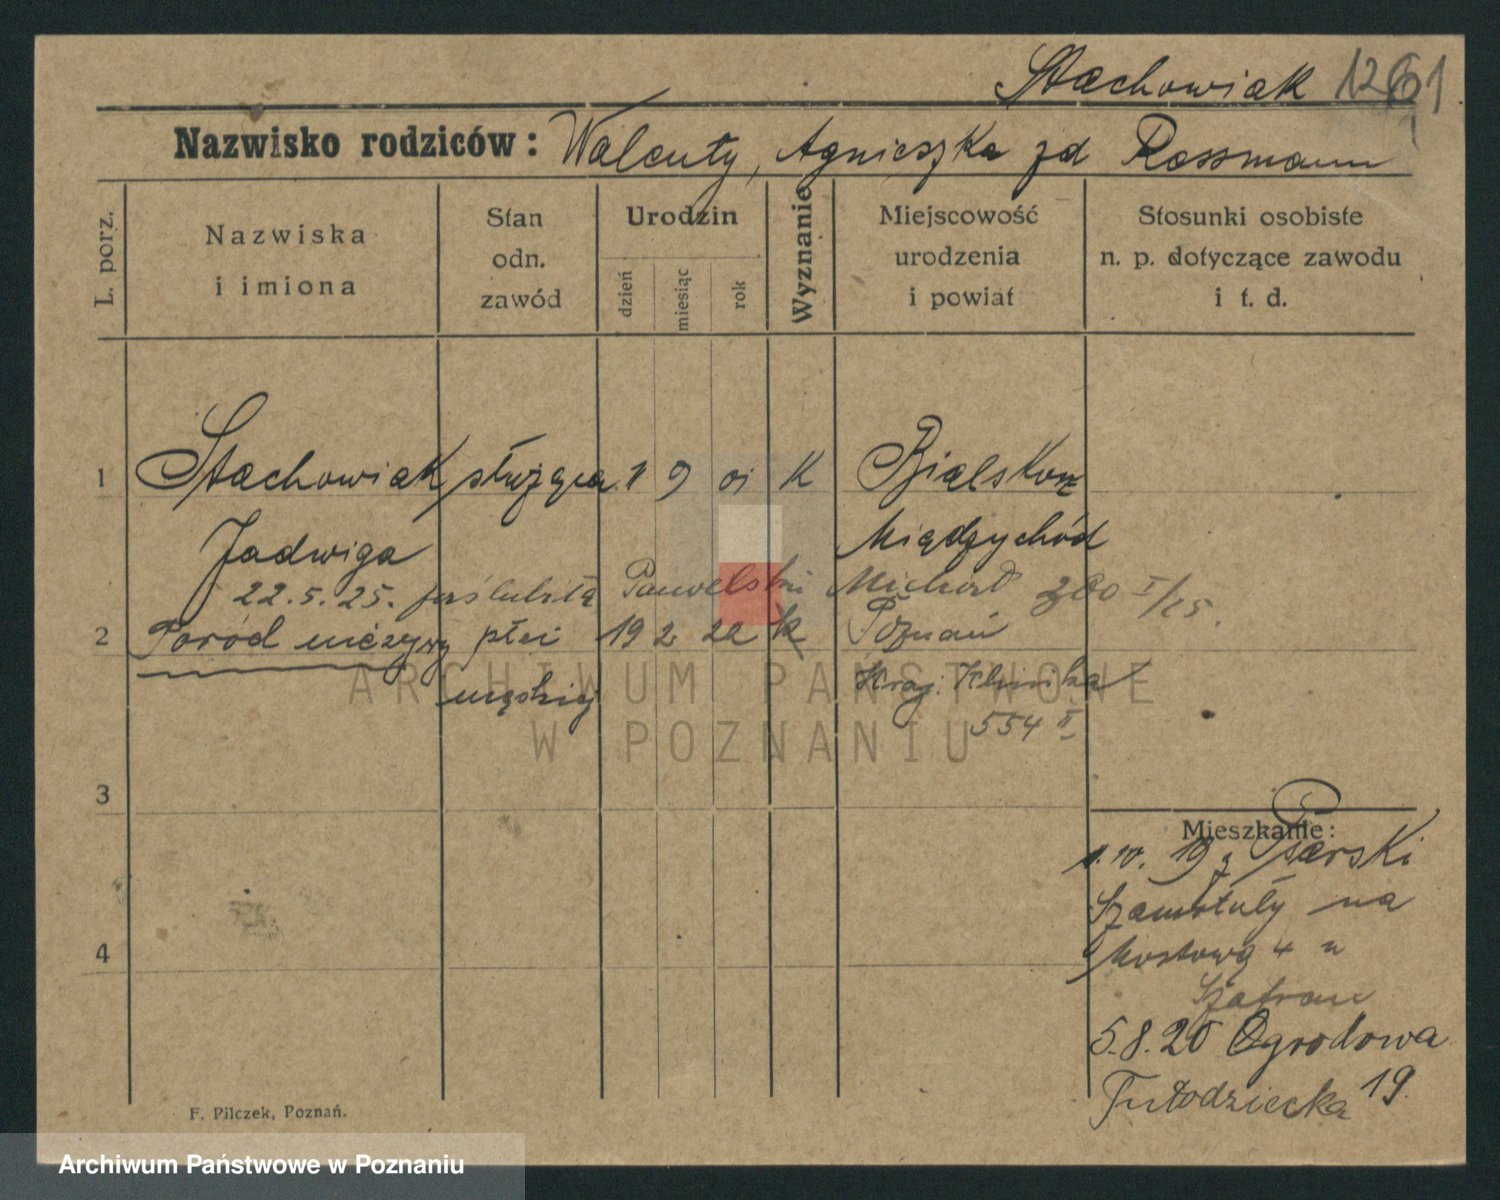 Stachowiak 1261
Nazwisko rodziców: Walenty, Agnieszka zd Rossmann
L. porz.
Nazwiska i imiona
Stan odn. zawód
Urodzin
dzień miesiąc rok
Wyznanie
Miejscowość urodzenia i powiat
Stosunki osobiste n. p. dotyczące zawodu i t. d.
1 Stachowiak służąca 1 9 01 K
Jadwiga Międzychód
22.5.25. poślubiła Pawelski Michał 380 I/25.
2 Poród nieżywy płci 19 2 22 k Poznań
męskiej Kraj. Klinika
554 II
3
Mieszkanie:
1.10. 19 z Psarski
Szamotuły na
4 Mostowa 4 u
Szafran
5.8.20 Ogrodowa
19.
F. Pilczek, Poznań.
ARCHIWUM PAŃSTWOWE
W POZNANIU
Archiwum Państwowe w Poznaniu